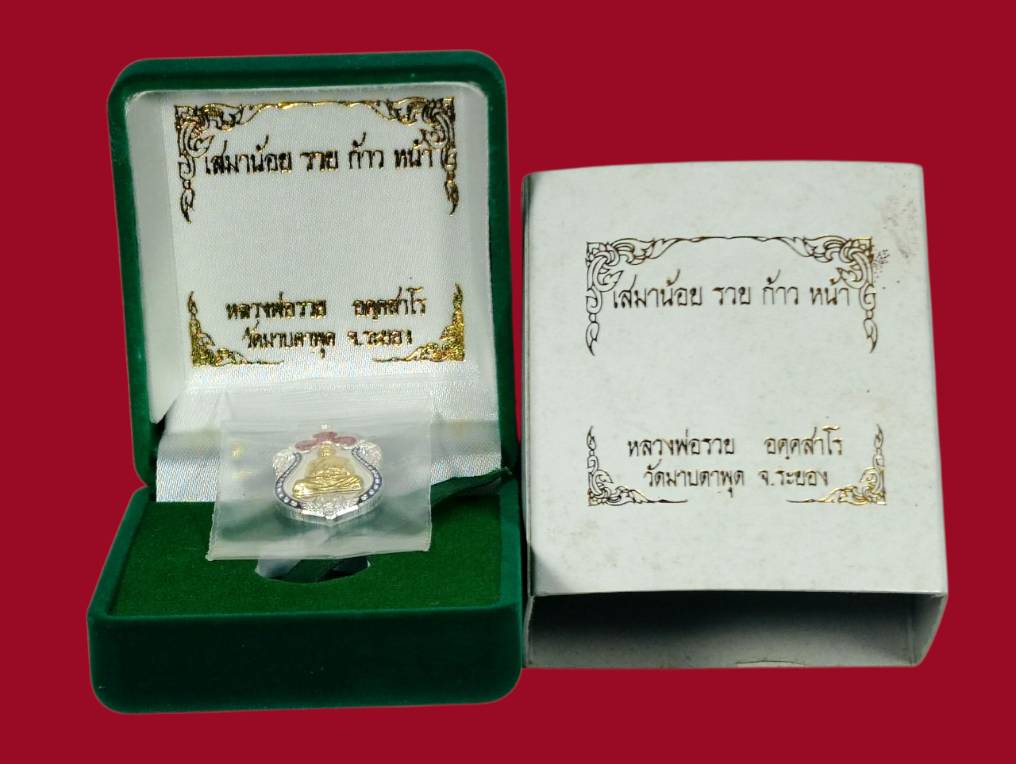 เสมาน้อย รวย ก้าว หน้า
หลวงพ่อรวย อคฺคสาโร
วัดมาบตาพุด จ.ระยอง
เสมาน้อย รวย ก้าว หน้า
หลวงพ่อรวย อคฺคสาโร
วัดมาบตาพุด จ.ระยอง